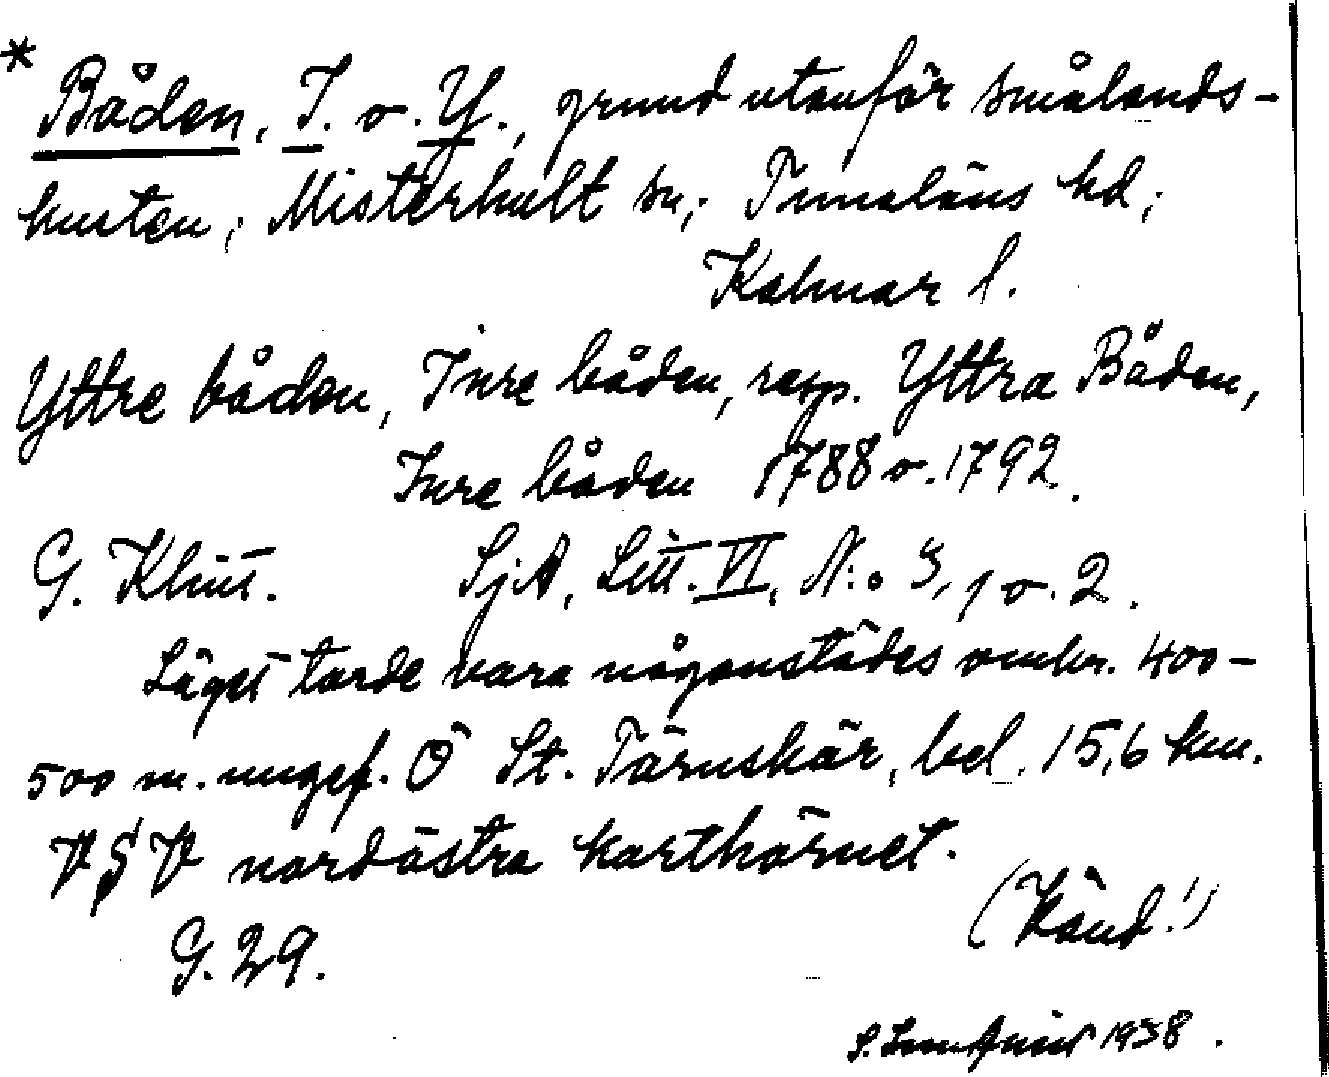 * Båden, I. o. Y., grund utanför smålands-
kusten; Misterhult sn; Tunaläns hd;
Kalmar l.
Yttre båden, Inre båden, resp. Yttra Båden,
Inre båden 1788 o. 1792.
G. Klint. SjA, Litt. VI, N:o 3, 1 o. 2.
Läget torde vara någonstädes omkr. 400-
500 m. ungef. Ö St. Tärnskär, bel. 15,6 km.
VSV nordöstra karthörnet.
(Känd!)
G. 29.
S. 1938.